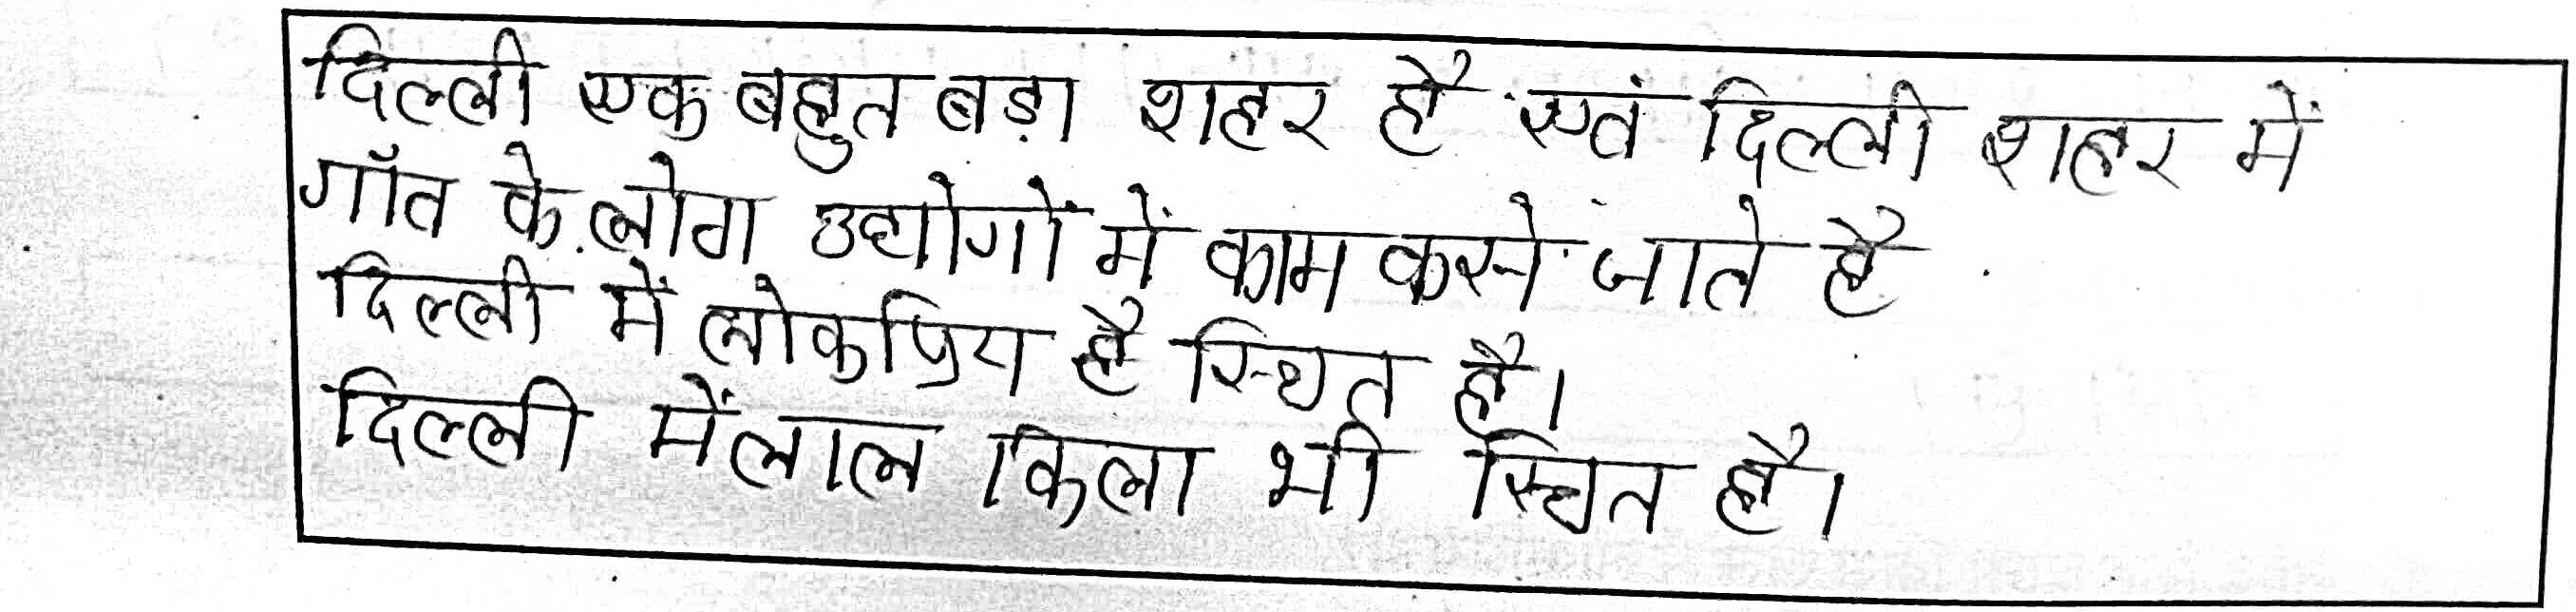 दिल्ली एक बहुत बड़ा शहर है एवं दिल्ली शहर में
गॉव के लोग उद्योगों में काम करने जाते है
दिल्ली में लोकप्रिय है स्थित है।
दिल्ली में लाल किला भी स्थित है।